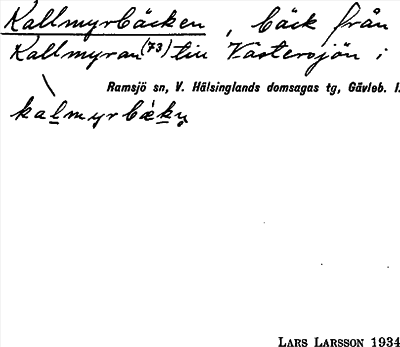 Kallmyrbäcken, bäck från
Kallmyran (73) till Västersjön i
Ramsjö sn, V. Hälsinglands domsagas tg, Gävleb. l.
kalmyrbæ̀ky
LARS LARSSON 1934